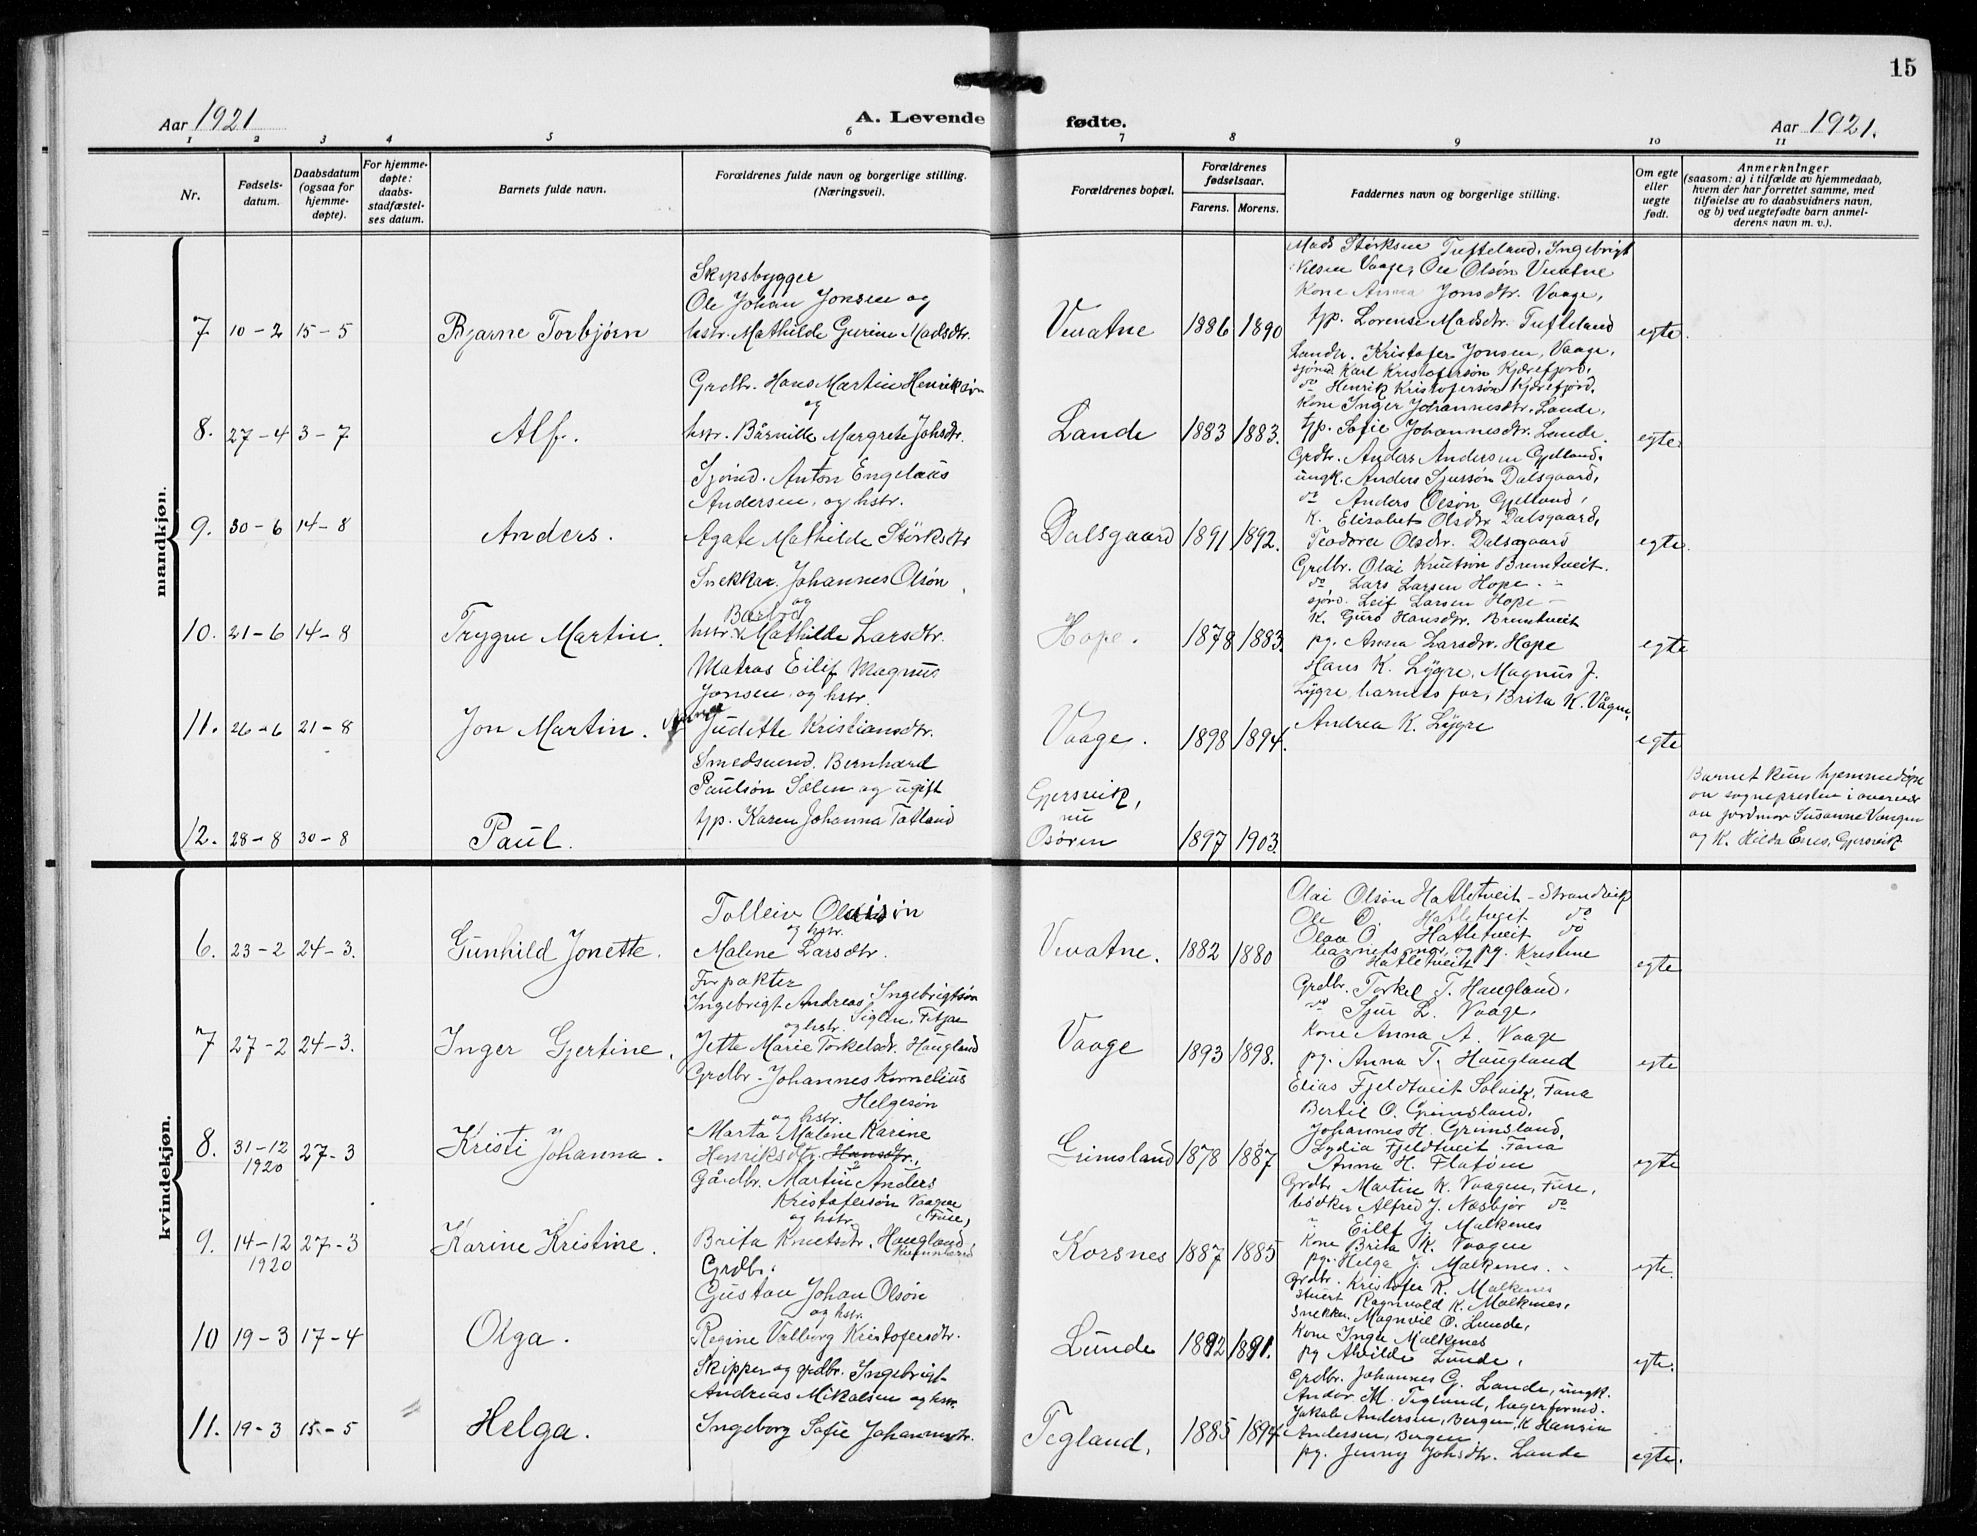 15
Aar 1921
A. Levende fødte.
Aar 1921.
1 2 3 4 5 6 7 8 9 10 11
Nr.
Fødsels-
datum.
Daabsdatum
(ogsaa for
hjemme-
døpte).
For hjemme-
døpte:
daabs-
stadfæstel-
ses datum.
Barnets fulde navn.
Forældrenes fulde navn og borgerlige stilling.
(Næringsvei).
Forældrenes bopæl.
Forældrenes
fødselsaar.
Farens. Morens.
Faddernes navn og borgerlige stilling.
Om egte
eller
uegte
født.
Anmerkninger
(saasom: a) i tilfælde av hjemmedaab,
hvem der har forrettet samme, med
tilføielse av to daabsvidners navn,
og b) ved uegtefødte barn anmel-
derens navn m. v.).
mandkjøn.
7 10-2 15-5 Bjarne Torbjørn
Skipsbygger
Ole Johan Jonsen og
hstr. Mathilde Gurine Madsdtr.
Vevatne 1886 1890
Mads Størksen Tufteland, Ingebrigt
Vaage, Ole Olsøn Vevatne
Kone Anna Jonsdtr. Vaage,
tjp. Lorense Madsdtr. Tufteland
egte.
8. 27-4 3-7 Alf.
Grdbr. Hans Martin Henriksøn
og
hstr. Bårnille Margrete Johsdtr.
Lande 1883 1883.
Landh. Kristofer Jonsen, Vaage,
sjømd. Karl Kristofersøn Kjærefjord,
do Henrik Kristofersøn Kjærefjord.
Kone Inger Johannesdtr. Lande,
tjp. Sofie Johannesdtr. Lande.
egte.
9. 30-6 14-8 Anders.
Sjömd. Anton Engelaus
Andersen, og hstr.
Agate Mathilde Størksdtr
Dalsgaard 1891 1892.
Grdbr. Anders Andersen Gjelland,
ungk. Anders Sjursøn Dalsgaard,
do Anders Olsøn Gjelland,
K. Elisabet Olsdtr. Dalsgaard,
Teodora Olsdtr. Dalsgaard
egte.
10. 21-6 14-8 Trygve Martin.
Snekker. Johannes Olsøn,
og
Barbro
hstr. Mathilde Larsdtr.
Hope. 1878 1883.
Grdbr. Olai Knutsøn Bremtveit.
do Lars Larsen Hope -
sjömd. Leif Larsen Hope -
K. Guro Hansdtr. Bremtveit
pg. Anna Larsdtr. Hope
egte
11. 26-6 21-8 Jon Martin.
Matros Eilif Magnus
Jonsen, og hstr.
Judette Kristiansdtr.
Vaage. 1898 1894.
Hans K. Lÿgre, Magnus J.
Lÿgre, barnets far, Brita K. Vågen,
Andrea K. Lÿgre
egte
12. 28-8 30-8 Paul.
Smedsvend. Bernhard
Paulsøn Sælen og ugift
tjp. Karen Johanna Tøtland
Gjersvik,
nu
Osøren 1897 1903.
Barnet kun hjemmedøpt
av sognepresten i overvær
av jordmor Susanne Vangen
og K. Hilda Enes, Gjersvik
kvindekjøn.
6. 23-2 24-3. Gunhild Jonette.
Tolleiv Olaisøn
og hstr.
Malene Larsdtr.
Vevatne. 1882 1880
Olai Olsøn Hatletveit - Strandvik
Ole O. Hatletveit do
Olav O. Hatletveit do
barnets mor, og pg. Kristine
O Hatletveit
egte
7 27-2 24-3. Inger Gjertine.
Forpakter
Ingebrigt Andreas Ingebrigtsøn
og hstr. Siglen, Fitjar
Jette Marie Torkelsdr. Haugland
Vaage 1893 1898.
Grdbr. Torkel T. Haugland,
do Sjur L. Vaage,
Kone Anna A. Vaage
pg. Anna T. Haugland
egte
8. 31-12 1920 27-3 Kristi Johanna.
Grdbr. Johannes Kornelius
Helgesøn
og hstr.
Marta Malene Karine
Henriksdtr. Hansdtr.,
Grimsland 1878 1887
Elias Fjeldtveit Solvik, Fana
Bertil O. Grimsland,
Johannes H. Grimsland,
Lydia Fjeldtveit Fana
Anna H. Flatøen
egte
9. 14-12 1920 27-3 Karine Kristine.
Gårdbr. Martin Anders
Kristofersøn Vaagen
og hstr. Fuse,
Brita Knutsdtr. Haugland,
Korsnes 1887 1885
Grdbr Martin K. Vaagen, Fuse,
bødker Alfred J. Næsbjør do
Eilef J. Malkenes
Kone Brita K. Vaagen
pg. Helga J. Malkenes.
egte.
10 19-3 17-4 Olga.
Grdbr.
Gustav Johan Olsøn
og hstr.
Regine Valborg Kristofersdtr.
Lunde 1892 1891.
Grdbr. Kristofer R. Malkenes
stuert Ragnvald K. Malkenes,
Snekker Magnvil O. Lunde,
Kone Inga Malkenes
pg Alvilde Lunde,
egte.
11. 19-3 15-5 Helga.
Skipper og grdbr. Ingebrigt
Andreas Mikalsen og hstr.
Ingeborg Sofie Johannesdtr.
Tegland, 1885 1894
Grdbr. Johannes G. Lande, ungk.
Andor M. Tegland, lagerformd.
Jakob Andersen, Bergen, K Hansin
Andersen, Bergen
pg. Jenny Johsdtr. Lande
egte.